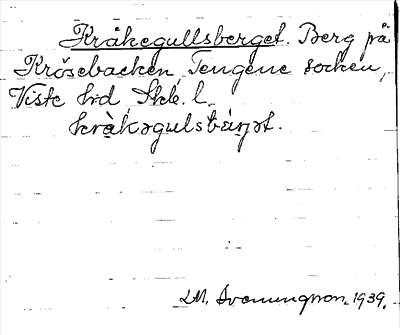 Kråkegullsberget. Berg på
Krösebacken, Tengene socken,
Viste hd, Skb. l.
kràkəgulsbár̨ət.
LM. Svenungsson. 1939.